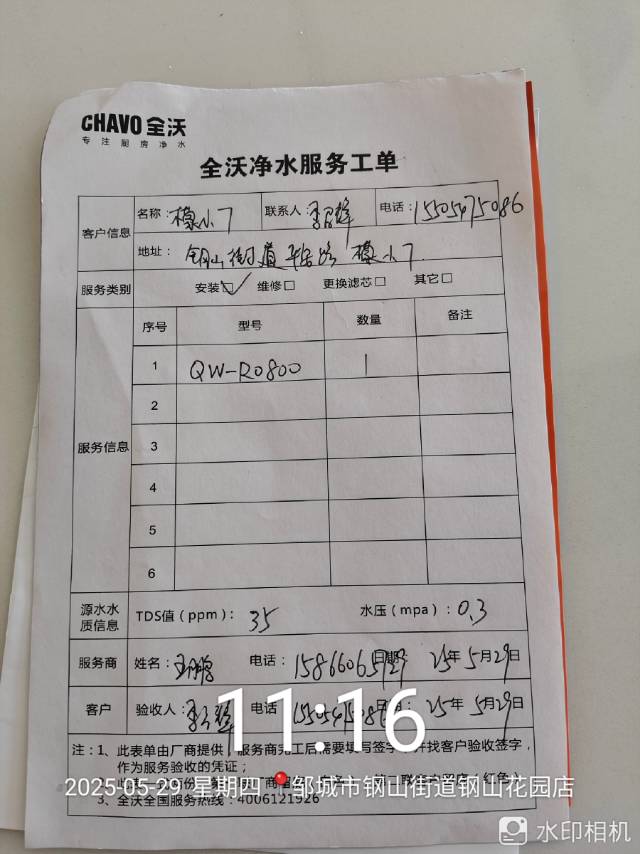 CHAVO 全沃
专注厨房净水
全沃净水服务工单
客户信息 名称: 联系人: 电话:
地址: 钢山街道
服务类别 安装☑ 维修□ 更换滤芯□ 其它□
服务信息 序号 型号 数量 备注
1 QW-RO800 1
2
3
4
5
6
源水水质信息 TDS值(ppm): 35 水压(mpa): 0.3
服务商 姓名: 电话: 日期: 25年5月29日
客户 验收人: 电话 25年5月29日
11:16
注:1、此表单由厂商提供,服务商完工后需填写签字,并找客户验收签字,
作为服务验收的凭证;
2025-05-29 星期四 邹城市钢山街道钢山花园店
3、全沃全国服务热线:4006121926
水印相机